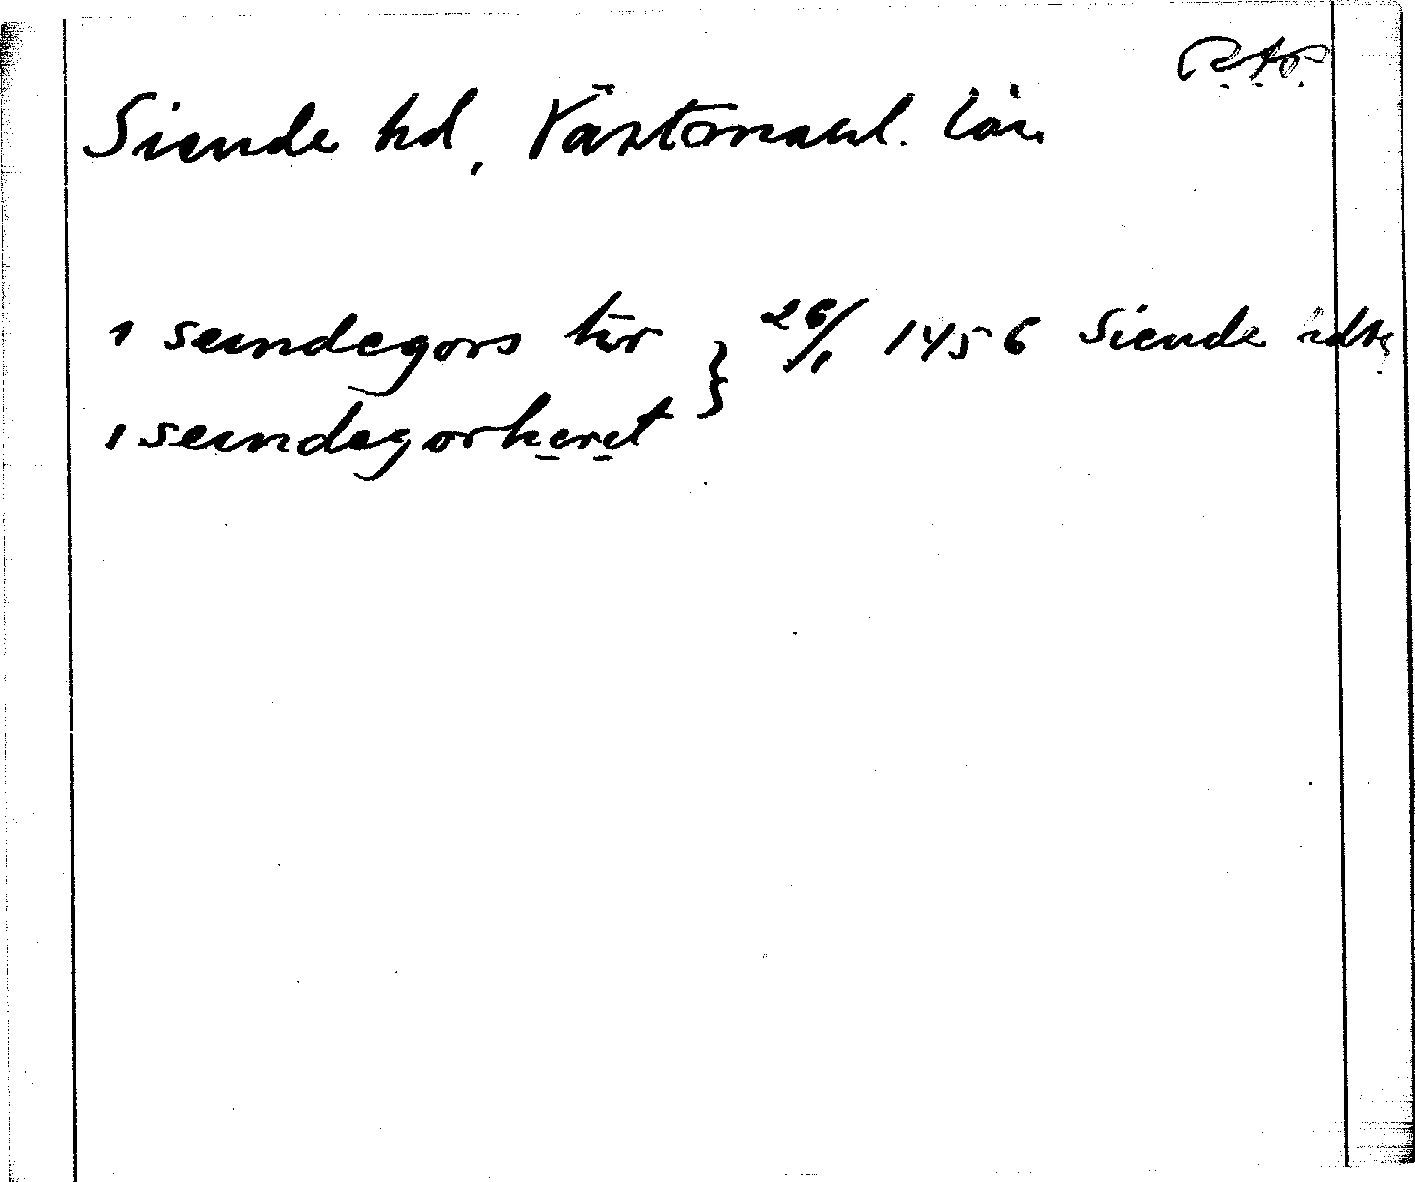 RAp.
Siende hd, Västmanl. län
i seundegors hr } 26/1 1456 Siende hdtg
i seundegorheret